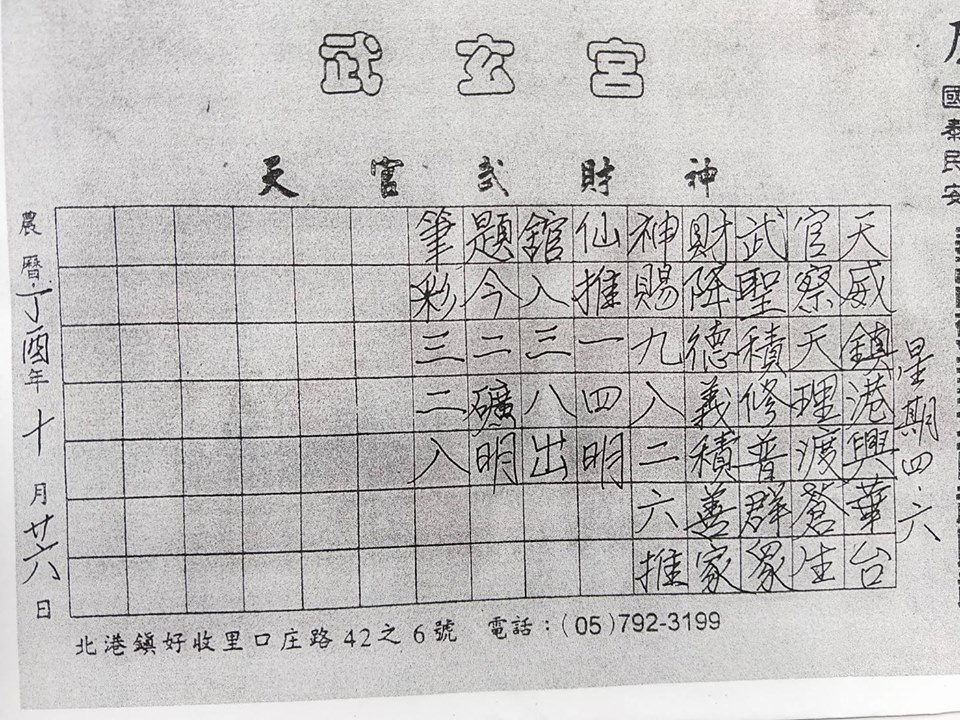 武玄宮
天官武財神
天威鎮港興華台
官察天理渡蒼生
武聖積修普群眾
財降德義積善家
神賜九入二六推
仙推一四明
館入三八出
題今二礦明
筆彩三二入
星期四.六
農曆丁酉年十月廿六日
北港鎮好收里口庄路42之6號 電話：(05)792-3199
國泰民安